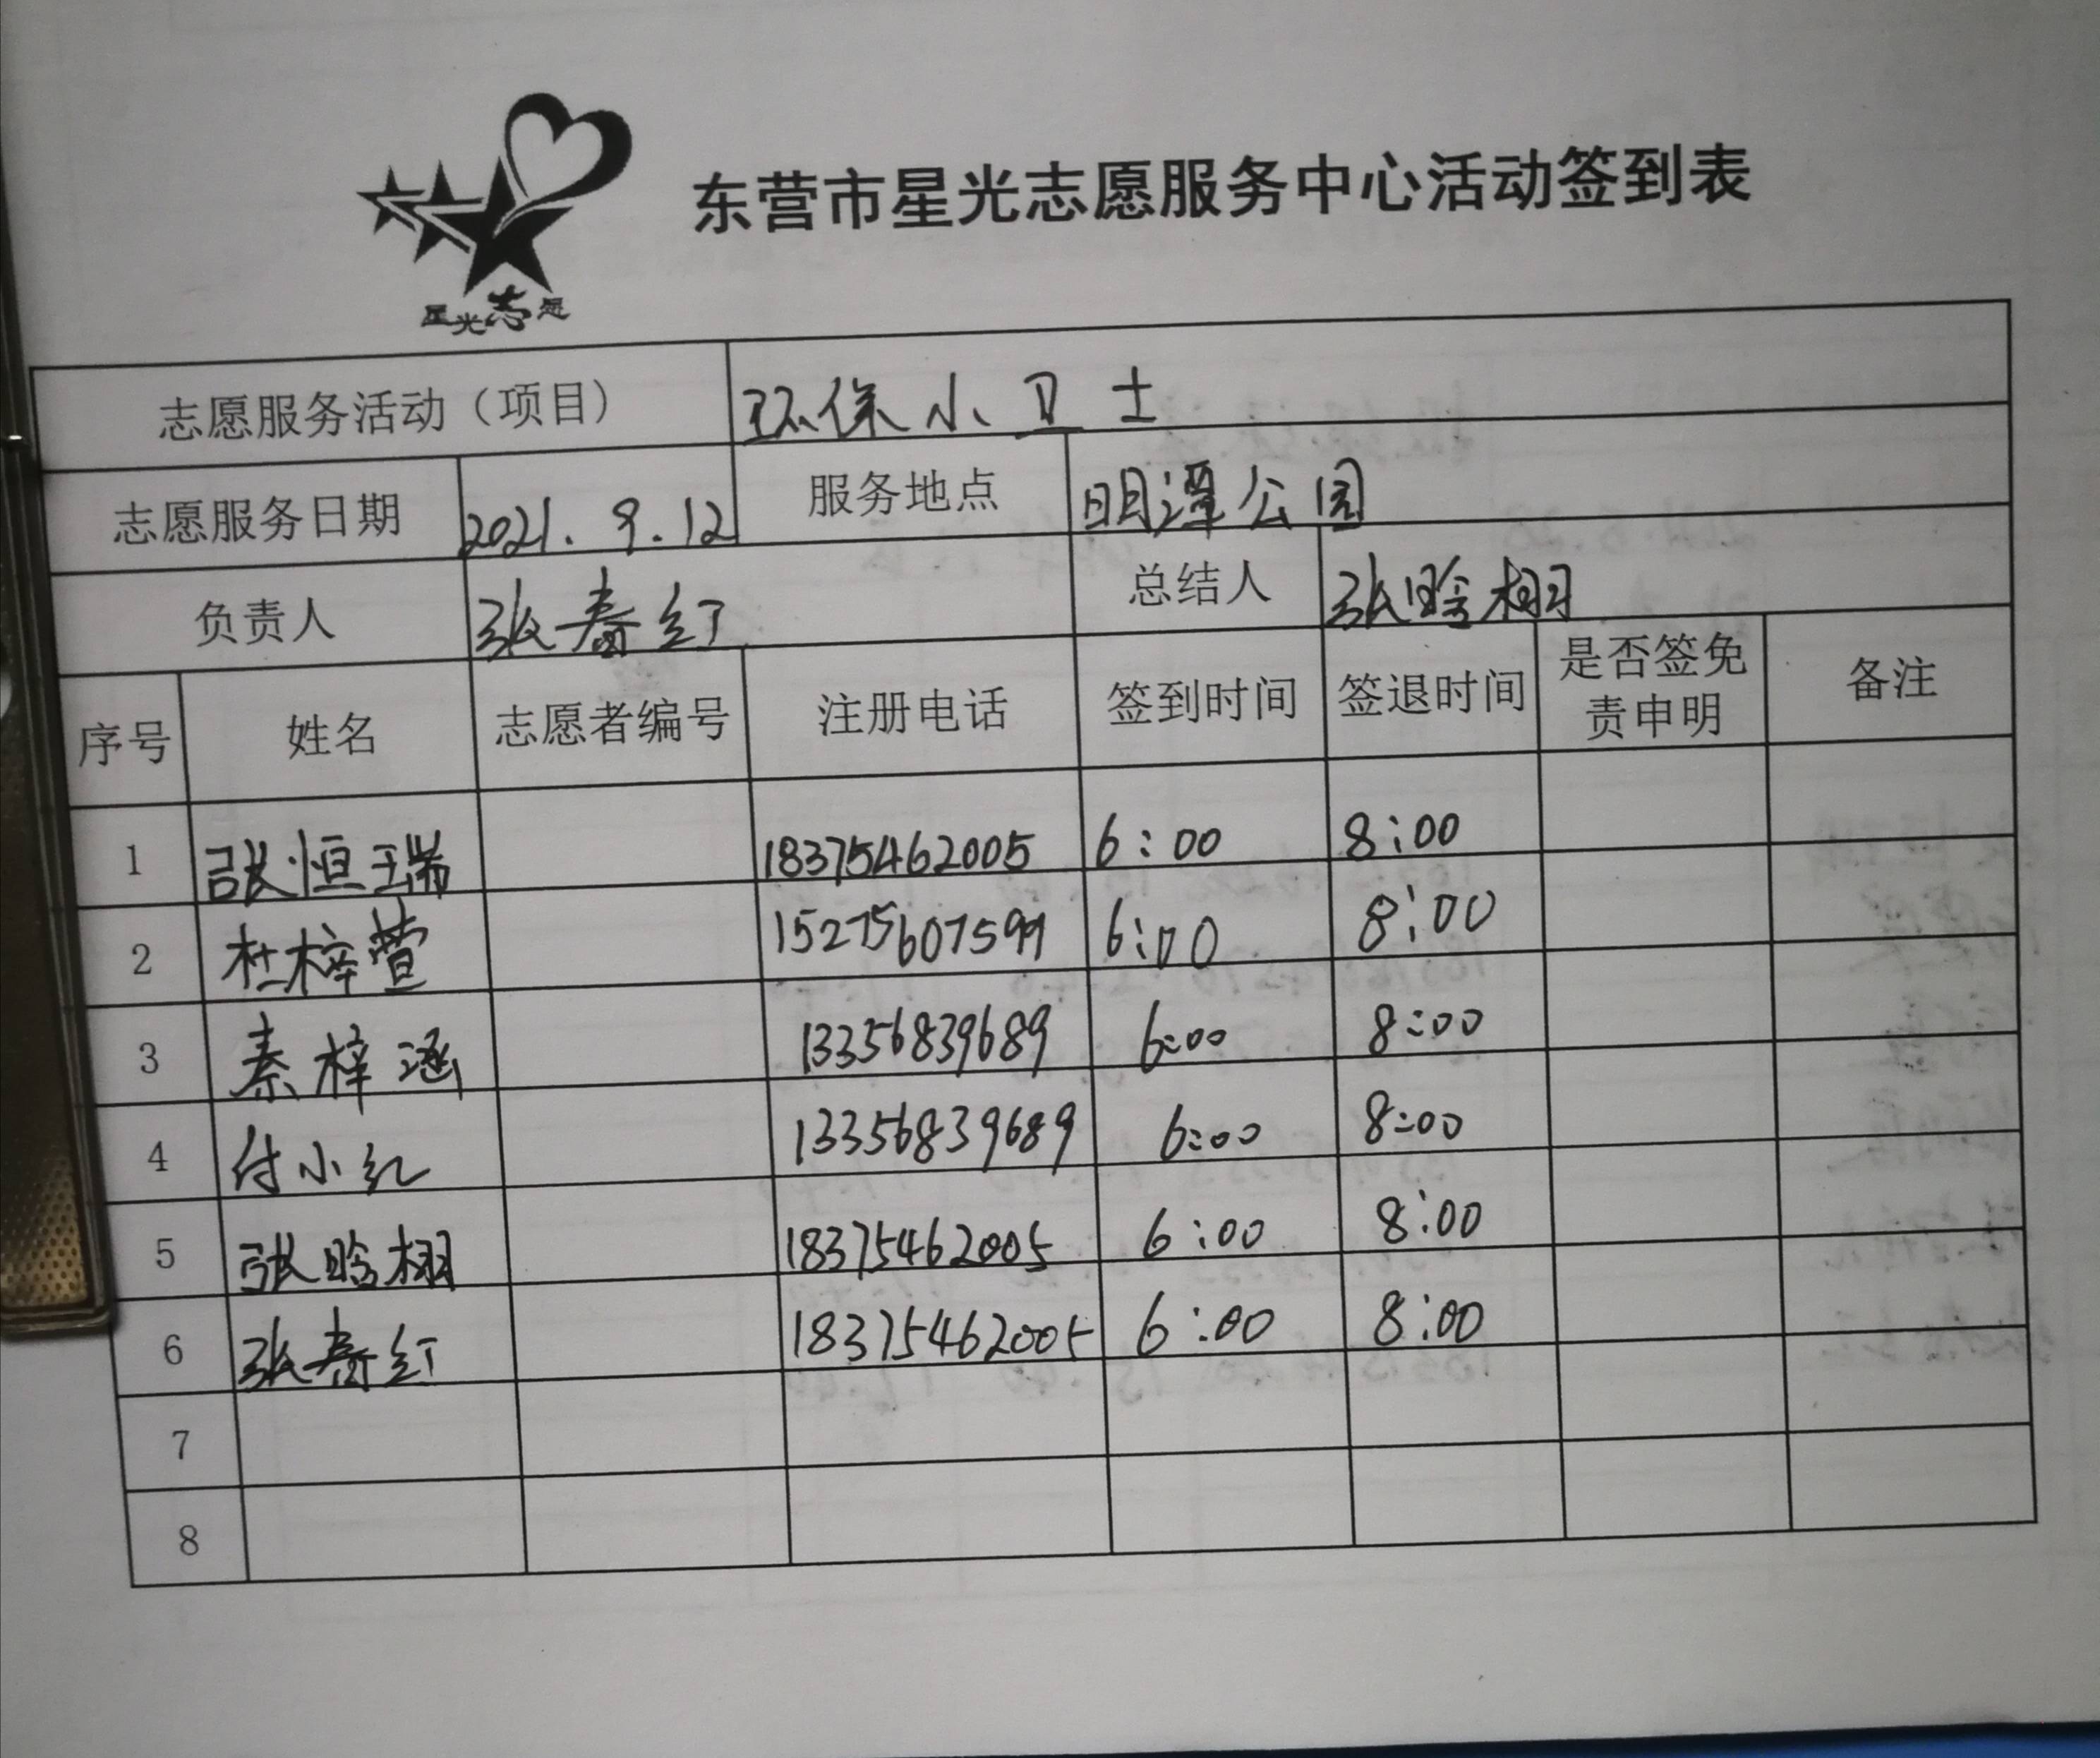 星光志愿
东营市星光志愿服务中心活动签到表
志愿服务活动（项目） 环保小卫士
志愿服务日期 2021.9.12 服务地点 明潭公园
负责人 张春红 总结人 张晗栩
序号 姓名 志愿者编号 注册电话 签到时间 签退时间 是否签免责申明 备注
1 张恒瑞 18375462005 6:00 8:00
2 杜梓萱 15275607599 6:00 8:00
3 秦梓涵 13356839689 6:00 8:00
4 付小红 13356839689 6:00 8:00
5 张晗栩 18375462005 6:00 8:00
6 张春红 18375462005 6:00 8:00
7
8